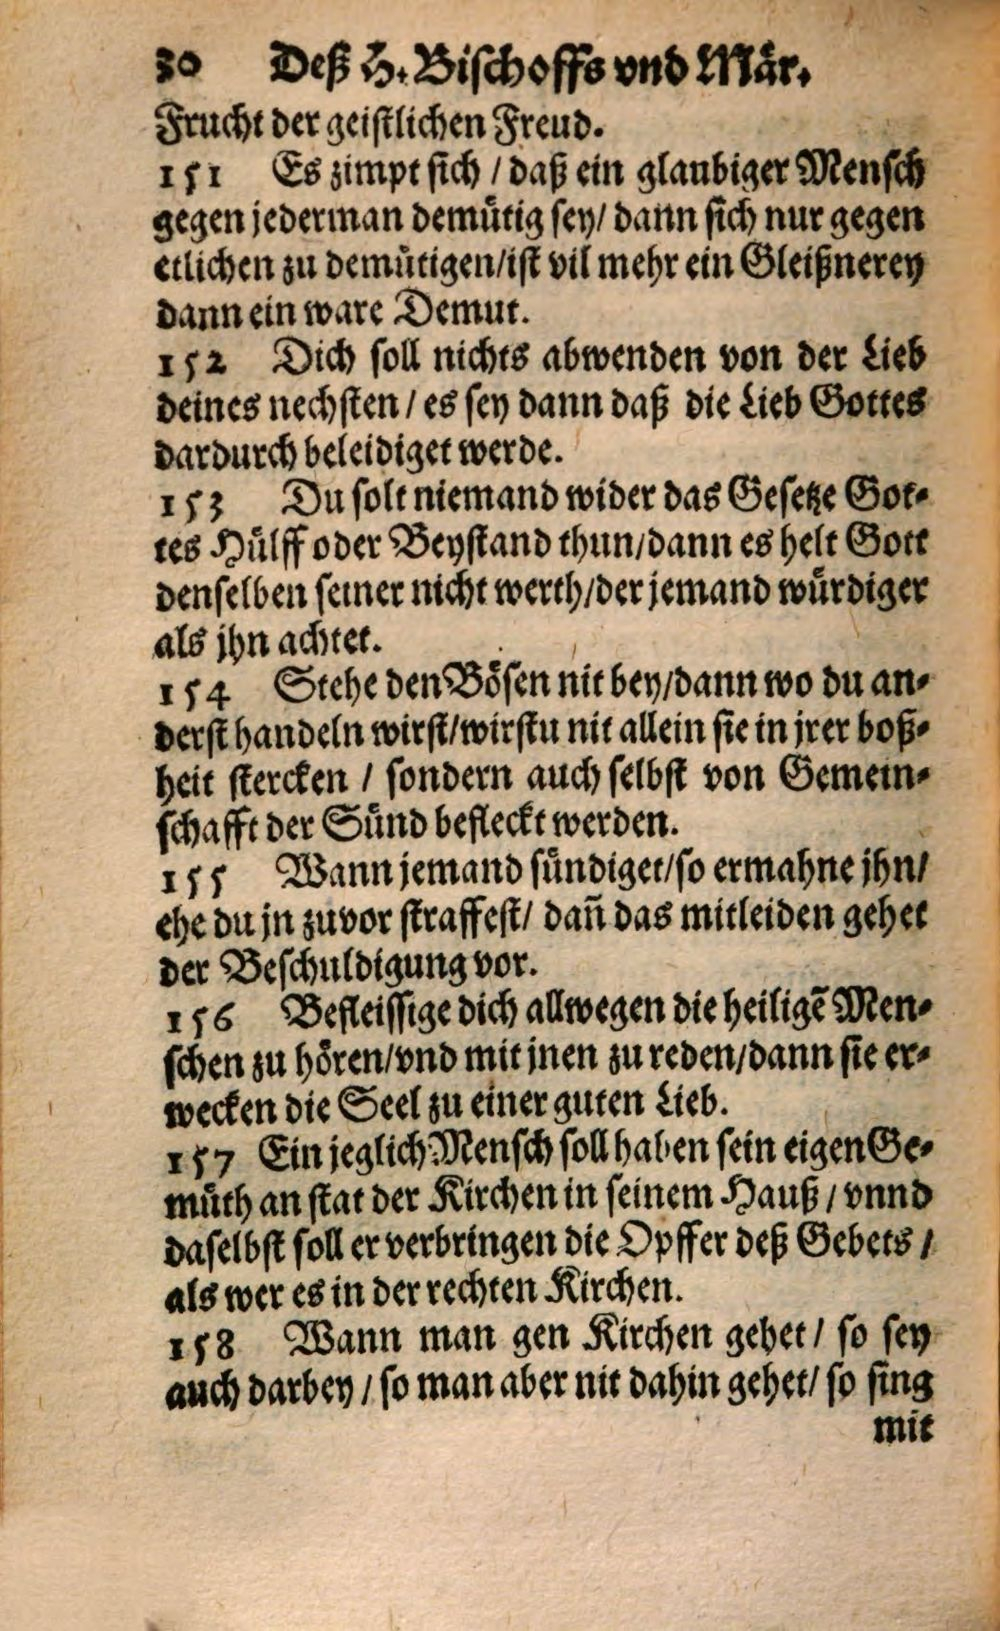 30 Deß H. Bischoffs vnd Mär.
Frucht der geistlichen Freud.
151 Es zimpt sich / daß ein glaubiger Mensch
gegen jederman demütig sey/ dann sich nur gegen
etlichen zu demütigen/ist vil mehr ein Gleißnerey
dann ein ware Demut.
152 Dich soll nichts abwenden von der Lieb
deines nechsten / es sey dann daß die Lieb Gottes
dardurch beleidiget werde.
153 Du solt niemand wider das Gesetze Got-
tes Hülff oder Beystand thun/dann es helt Gott
denselben seiner nicht werth/der jemand würdiger
als jhn achtet.
154 Stehe den Bösen nit bey/dann wo du an-
derst handeln wirst/wirstu nit allein sie in jrer boß-
heit stercken / sondern auch selbst von Gemein-
schafft der Sünd befleckt werden.
155 Wann jemand sündiget/so ermahne jhn/
ehe du jn zuvor straffest/ dañ das mitleiden gehet
der Beschuldigung vor.
156 Befleissige dich allwegen die heiligē Men-
schen zu hören/vnd mit jnen zu reden/dann sie er-
wecken die Seel zu einer guten Lieb.
157 Ein jeglich Mensch soll haben sein eigen Ge-
müth an stat der Kirchen in seinem Hauß / vnnd
daselbst soll er verbringen die Opffer deß Gebets /
als wer es in der rechten Kirchen.
158 Wann man gen Kirchen gehet / so sey
auch darbey / so man aber nit dahin gehet/ so sing
mit